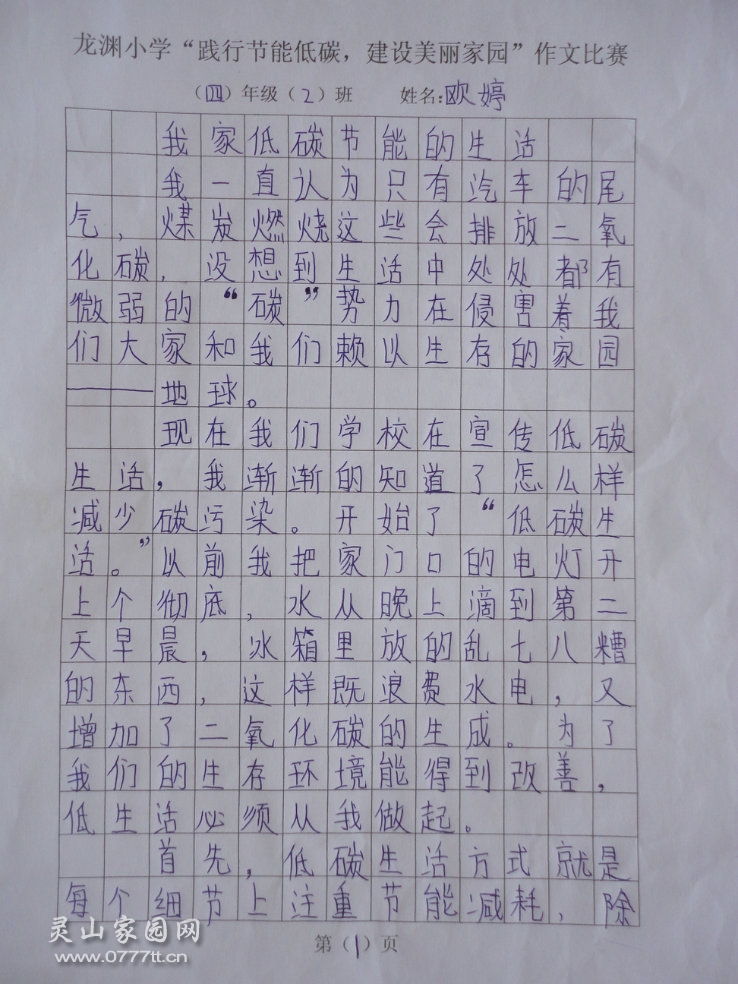 龙渊小学“践行节能低碳，建设美丽家园”作文比赛
（四）年级（2）班 姓名：欧婷
我家低碳节能的生活
我一直认为只有汽车的尾
气，煤炭燃烧这些会排放二氧
化碳，没想到生活中处处都有
微弱的“碳”势力在侵害着我
们大家和我们赖以生存的家园
——地球。
现在我们学校在宣传低碳
生活，我渐渐的知道了怎么样
减少碳污染。开始了“低碳生
活。”以前我把家门口的电灯开
上个彻底，水从晚上滴到第二
天早晨，冰箱里放的乱七八糟
的东西，这样既浪费水电，又
增加了二氧化碳的生成。为了
我们的生存环境能得到改善，
低生活必须从我做起。
首先，低碳生活方式就是
每个细节上注重节能减耗，除
第（1）页
灵山家园网
www.0777tt.cn